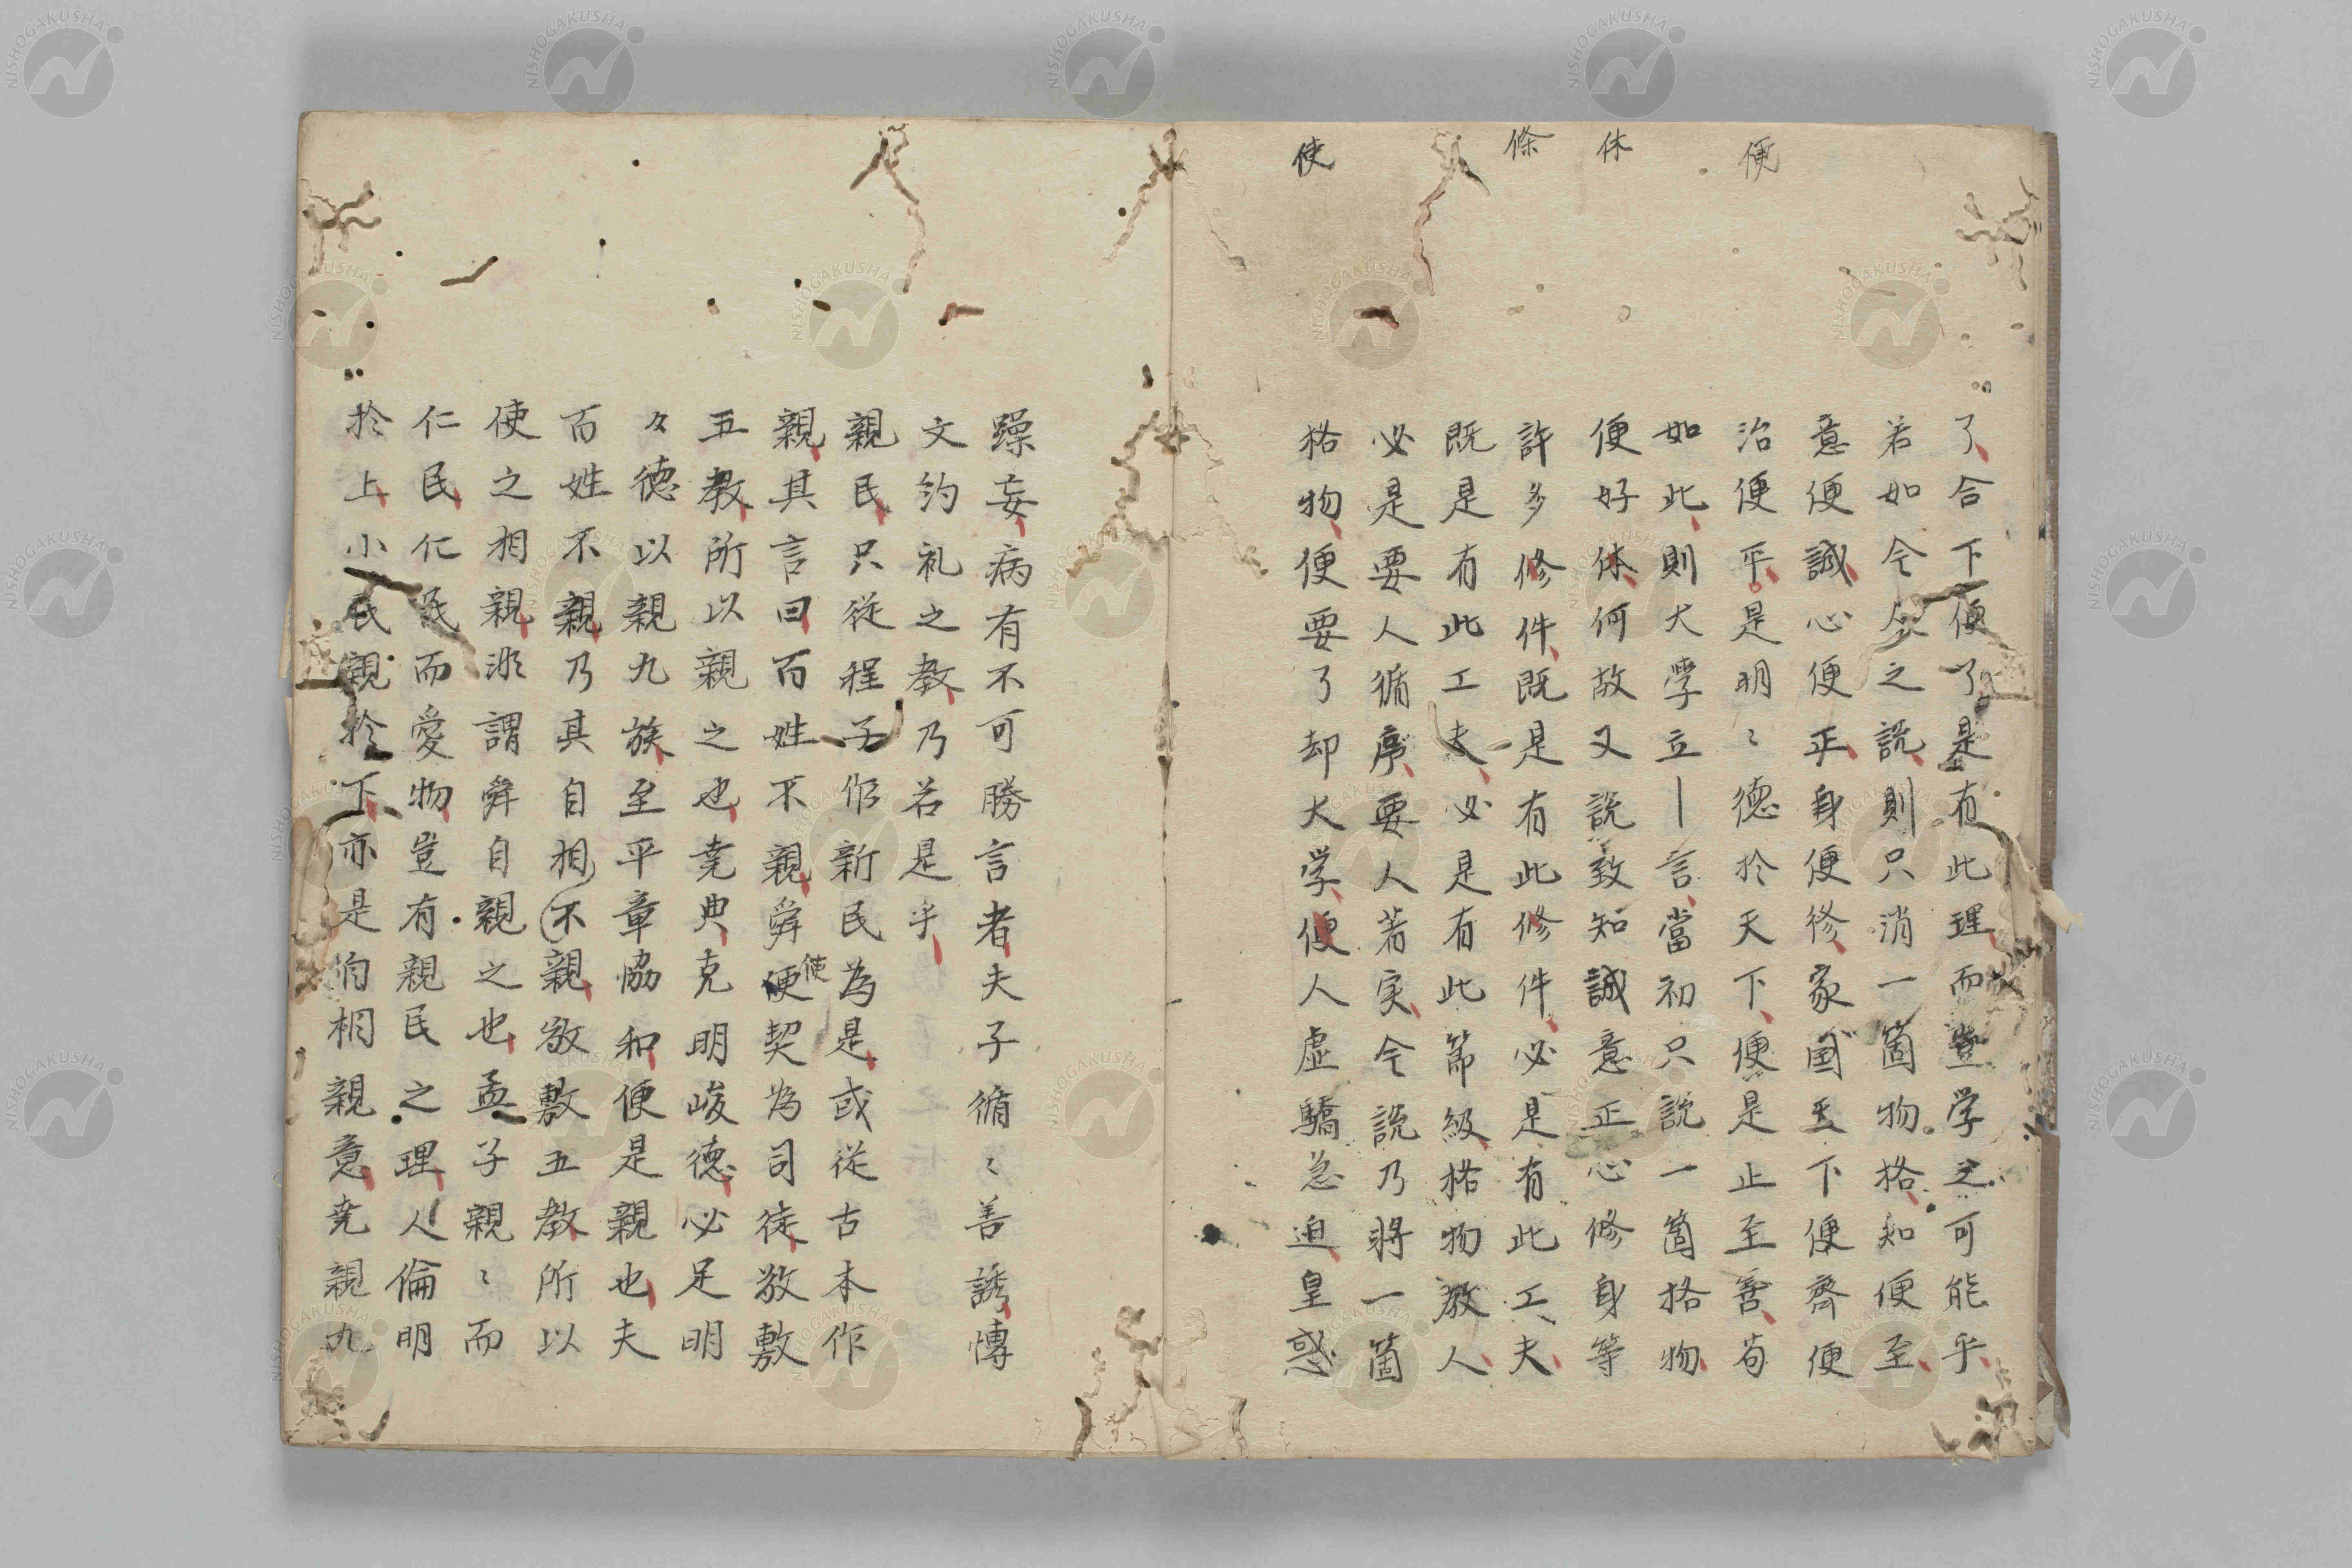 便
休
條
使
了合下便了是有此理而豈学之可能乎
若如今人之説則只消一箇物格知便至
意便誠心便正身便修家国天下便齊便
治便平是明〻德於天下便是止至善苟
如此則大學立一言當初只説一箇格物
便好休何故又説致知誠意正心修身等
許多修件既是有此修件必是有此工夫
既是有此工夫必是有此節級格物教人
必是要人循序要人着実今説乃將一箇
格物便要了却大学便人虚驕急迫皇惑
躁妄病有不可勝言者夫子循〻善誘慱
文約礼之教乃若是乎
親民只從程子作新民為是或從古本作
親其言曰百姓不親舜便使契為司徒敬敷
五教所以親之也堯典克明峻德必足明
々德以親九族至平章協和便是親也夫
百姓不親乃其自相不親敬敷五教所以
使之相親非謂舜自親之也孟子親〻而
仁民仁民而愛物豈有親民之理人倫明
於上小民親於下亦是伯相親意堯親九
NISHOGAKUSHA